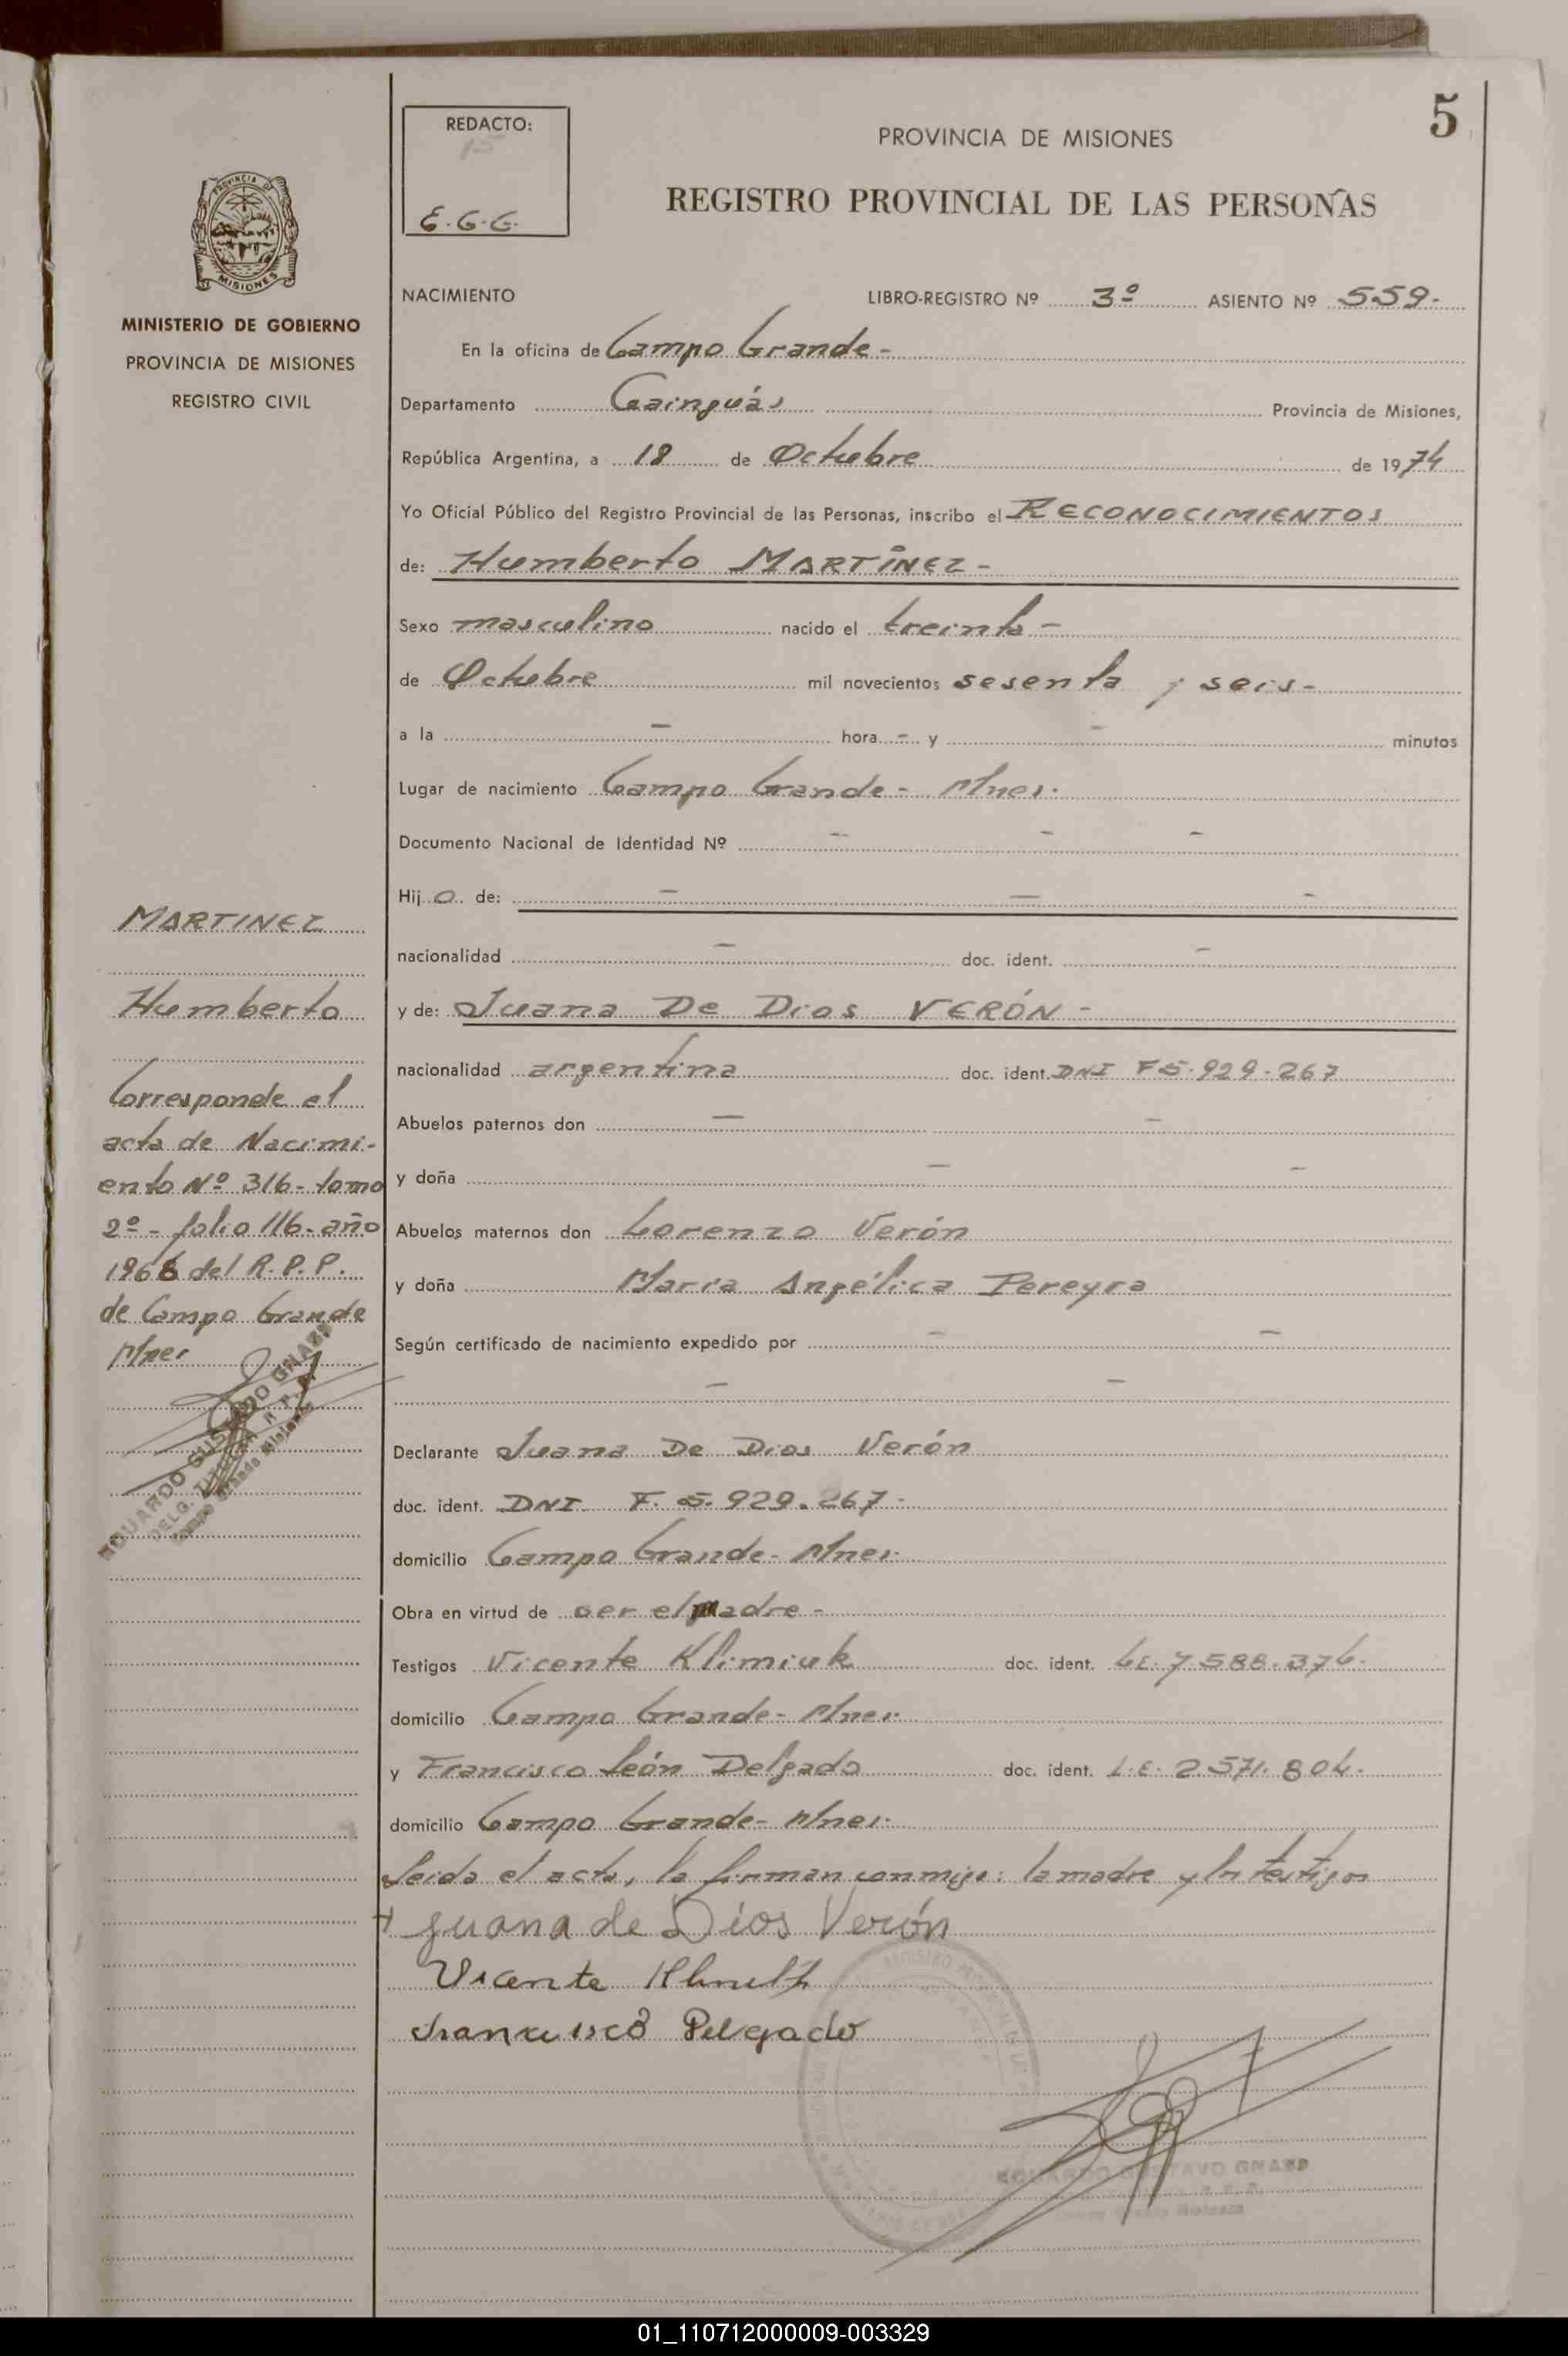 5
REDACTO:
15
E.G.G.
PROVINCIA DE MISIONES
REGISTRO PROVINCIAL DE LAS PERSONAS
PROVINCIA DE
MISIONES
MINISTERIO DE GOBIERNO
PROVINCIA DE MISIONES
REGISTRO CIVIL
NACIMIENTO LIBRO-REGISTRO Nº 3º ASIENTO Nº 559.-
En la oficina de Campo Grande -
Departamento Cainguás Provincia de Misiones,
República Argentina, a 18 de Octubre de 1974
Yo Oficial Público del Registro Provincial de las Personas, inscribo el RECONOCIMIENTOS
de: Humberto MARTÍNEZ -
Sexo masculino nacido el treinta -
de Octubre mil novecientos sesenta y seis -
a la - hora - y - minutos
Lugar de nacimiento Campo Grande - Mnes.
Documento Nacional de Identidad Nº - - -
Hijo de: - - -
nacionalidad - doc. ident. -
y de: Juana De Dios VERÓN -
nacionalidad argentina doc. ident. DNI F5.929.267
Abuelos paternos don - -
y doña - -
Abuelos maternos don Lorenzo Verón
y doña María Angélica Pereyra
Según certificado de nacimiento expedido por - -
- -
Declarante Juana De Dios Verón
doc. ident. DNI F. 5.929.267-
domicilio Campo Grande - Mnes.
Obra en virtud de ser el madre -
Testigos Vicente Klimiuk doc. ident. LE. 7.588.376.
domicilio Campo Grande - Mnes.
y Francisco León Delgado doc. ident. L.E. 2.571.804.
domicilio Campo Grande - Mnes.
Leida el acta, la firman conmigo: la madre y los testigos
+ Juana de Dios Verón
Vicente
Francisco Delgado
EDUARDO GUSTAVO GNASS
MARTINEZ
Humberto
Corresponde el
acta de Nacimi-
ento Nº 316- tomo
2º - folio 116- año
1966 del R.P.P.
de Campo Grande
Mnes
EDUARDO GUSTAVO GNASS
DELG. TITULAR R. P. P.
Campo Grande Misiones
01_110712000009-003329